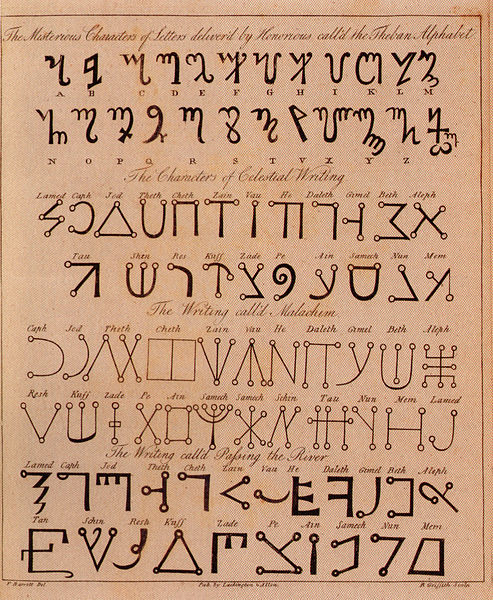 The Misterious Characters of Letters deliver'd by Honorious call'd the Theban Alphabet
A B C D E F G H I K L M
N O P Q R S T V X Y Z
The Characters of Celestial Writing
Lamed Caph Jod Theth Cheth Zain Vau He Daleth Gimel Beth Aleph
Tau Shin Res Kuff Zade Pe Ain Samech Nun Mem
The Writing call'd Malachim
Caph Jod Theth Cheth Zain Vau He Daleth Gimel Beth Aleph
Resh Kuff Zade Pe Ain Samech Samech Schin Tau Nun Mem Lamed
The Writing call'd Passing the River
Lamed Caph Jod Theth Cheth Zain Vau He Daleth Gimel Beth Aleph
Tau Schin Resh Kuff Zade Pe Ain Samech Nun Mem
F. Barrett Del. Pub. by Lackington & Allen. R. Griffith Sculp.